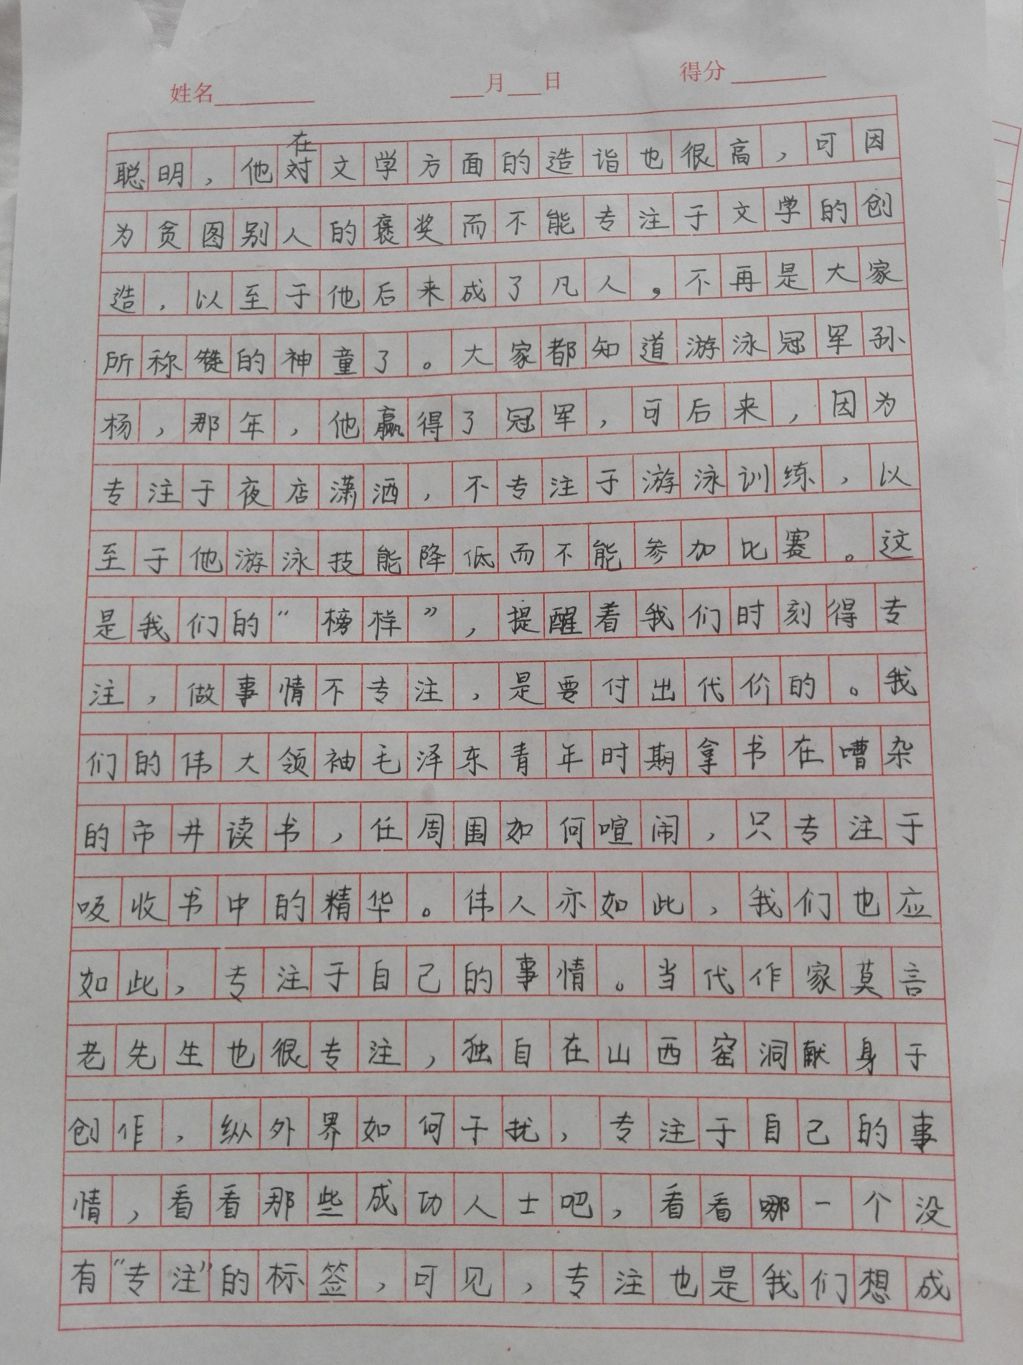 姓名 月 日 得分
聪明，他在对文学方面的造诣也很高，可因
为贪图别人的褒奖而不能专注于文学的创
造，以至于他后来成了凡人，不再是大家
所称赞的神童了。大家都知道游泳冠军孙
杨，那年，他赢得了冠军，可后来，因为
专注于夜店潇洒，不专注于游泳训练，以
至于他游泳技能降低而不能参加比赛。这
是我们的“榜样”，提醒着我们时刻得专
注，做事情不专注，是要付出代价的。我
们的伟大领袖毛泽东青年时期拿书在嘈杂
的市井读书，任周围如何喧闹，只专注于
吸收书中的精华。伟人亦如此，我们也应
如此，专注于自己的事情。当代作家莫言
老先生也很专注，独自在山西窑洞献身于
创作，纵外界如何干扰，专注于自己的事
情，看看那些成功人士吧，看看哪一个没
有“专注”的标签，可见，专注也是我们想成